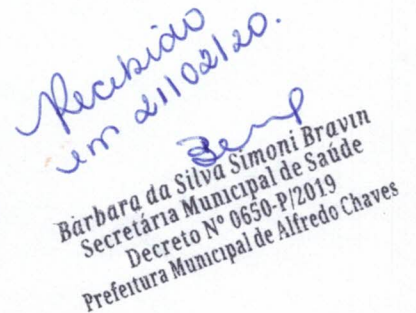 Recebido
em 21/02/20.
Bárbara da Silva Simoni Bravin
Secretária Municipal de Saúde
Decreto Nº 0650-P/2019
Prefeitura Municipal de Alfredo Chaves